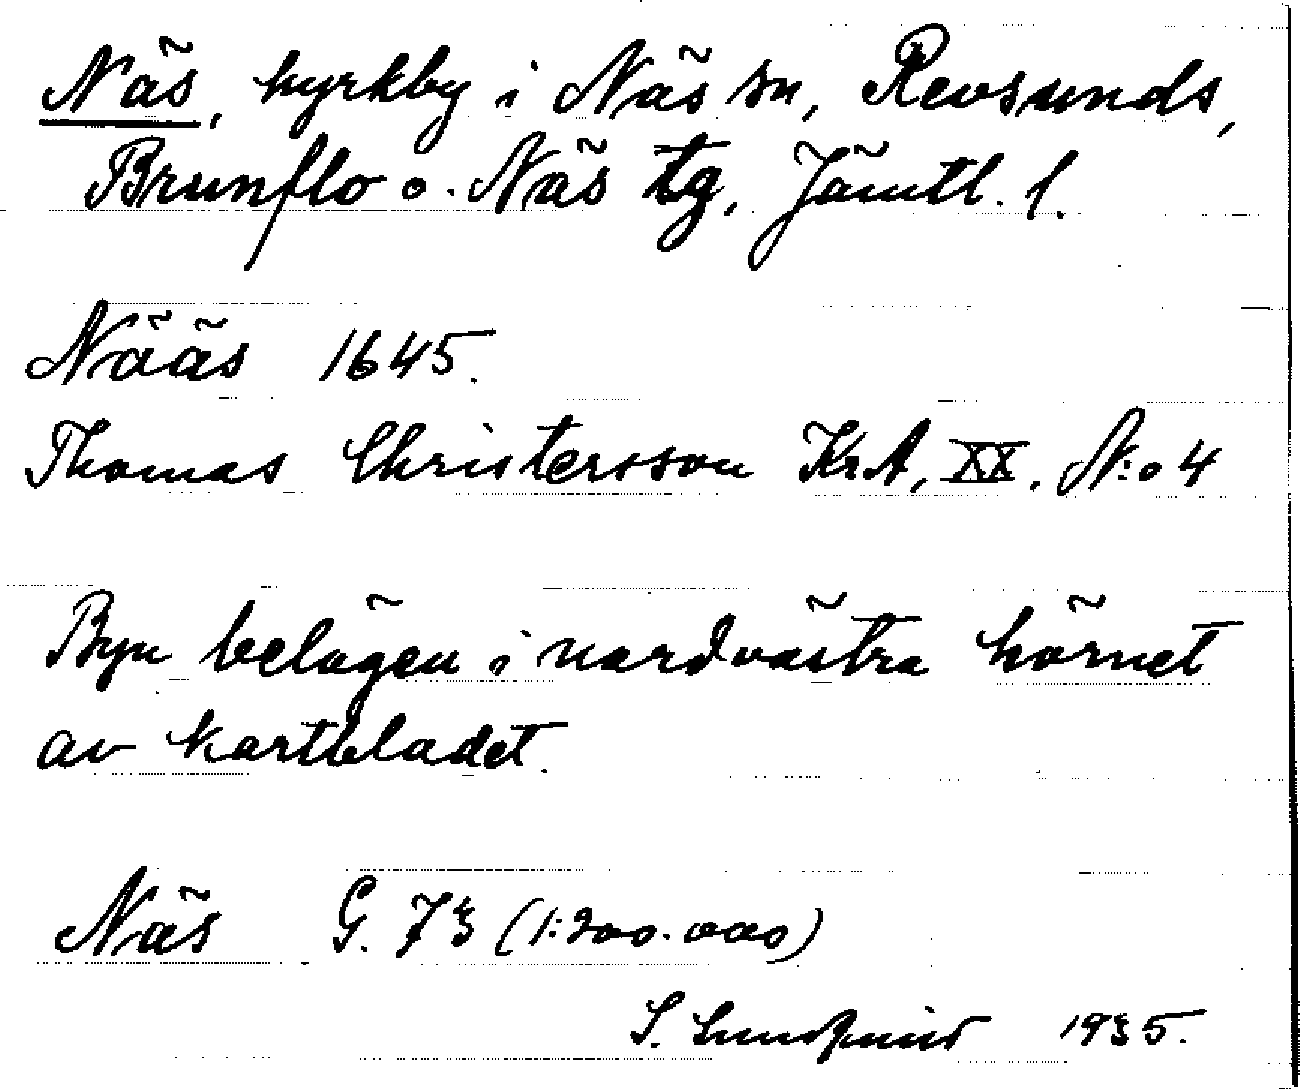 Näs, kyrkby i Näs sn, Revsunds,
Brunflo o. Näs tg, Jämtl. l.
Nääs 1645.
Thomas Christersson Kr.A, XX. N:o 4
Byn belägen i nordvästra hörnet
av kartbladet.
Näs G. 73 (1:200.000)
S. Lundquist 1935.